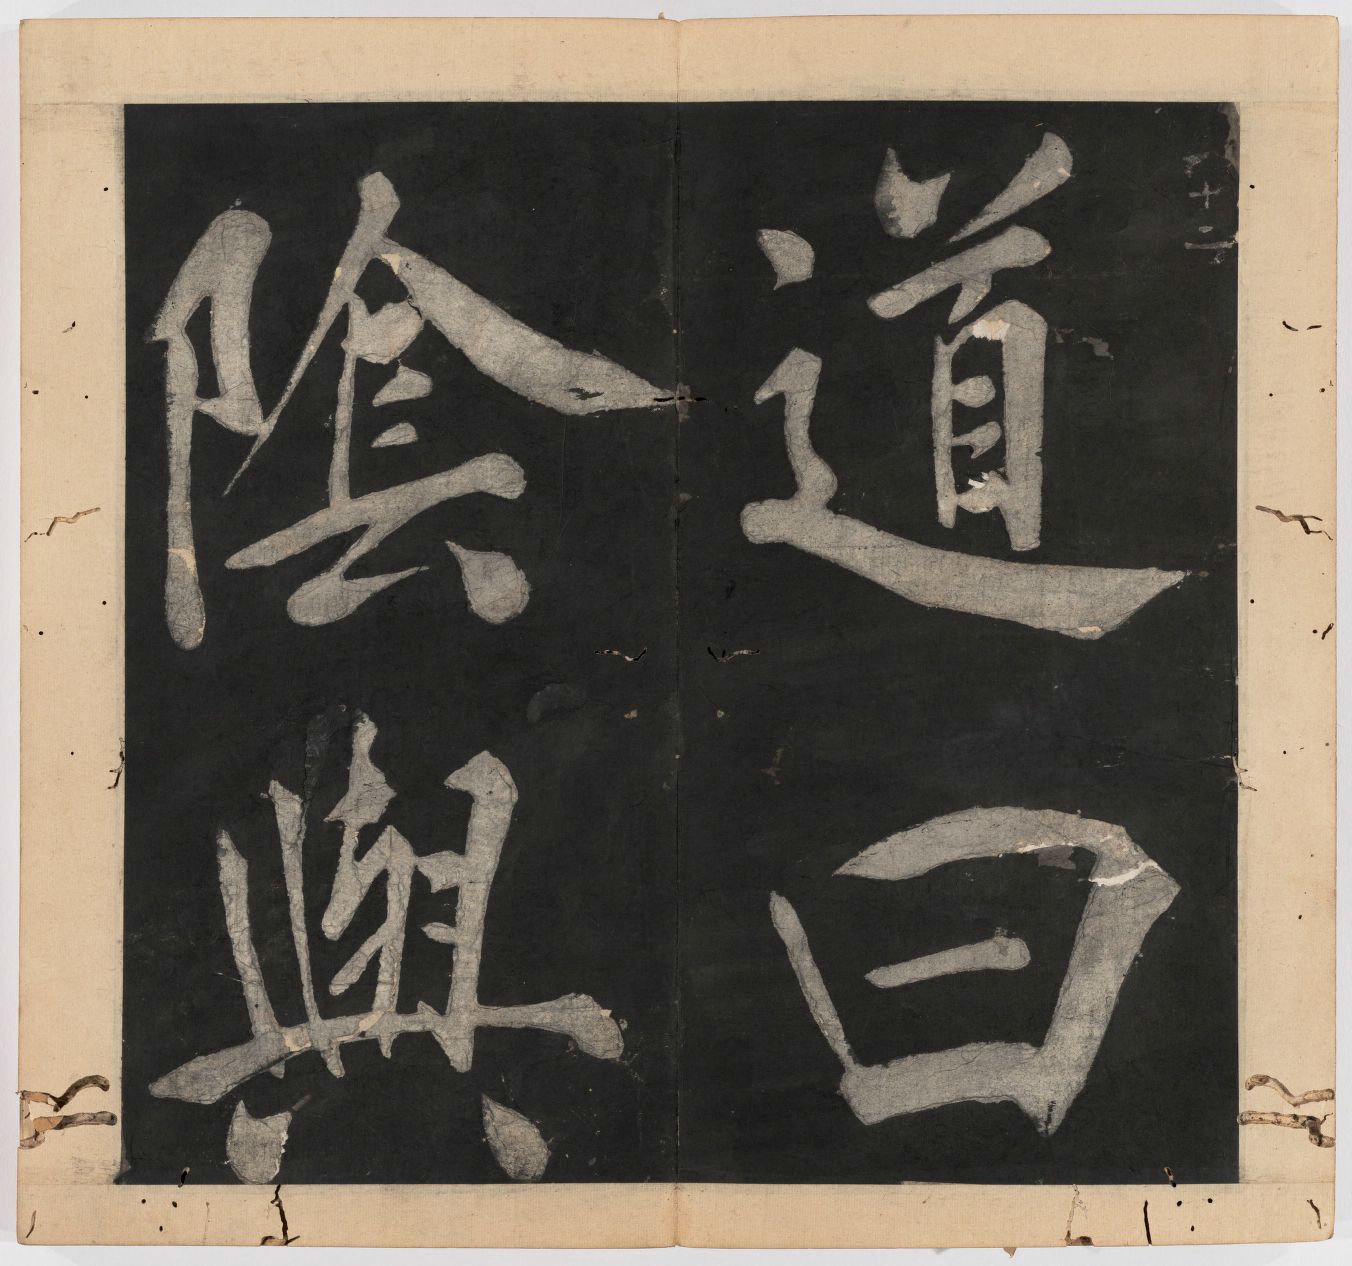 十二
道曰
陰與